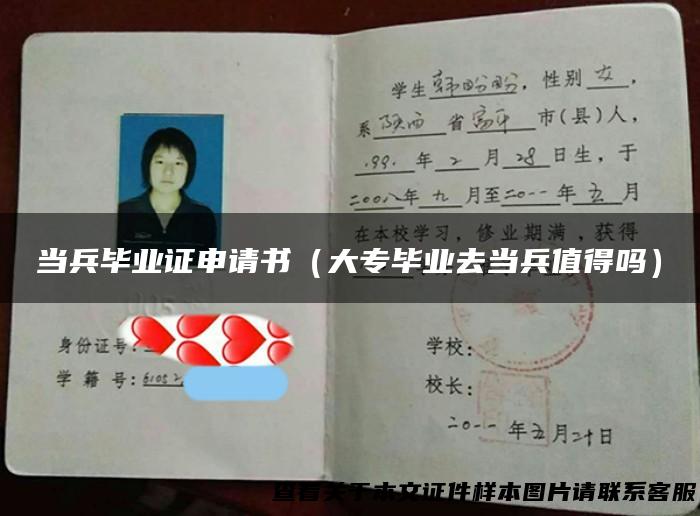 学生韩盼盼，性别女，
系陕西省富平市(县)人，
.991.年2月28日生，于
二00八年九月至二0一一年五月
在本校学习，修业期满，获得
当兵毕业证申请书（大专毕业去当兵值得吗）
身份证号：
学籍号：61052
学校：
校长：
二0一一年五月二十日
查看关于本文证件样本图片请联系客服